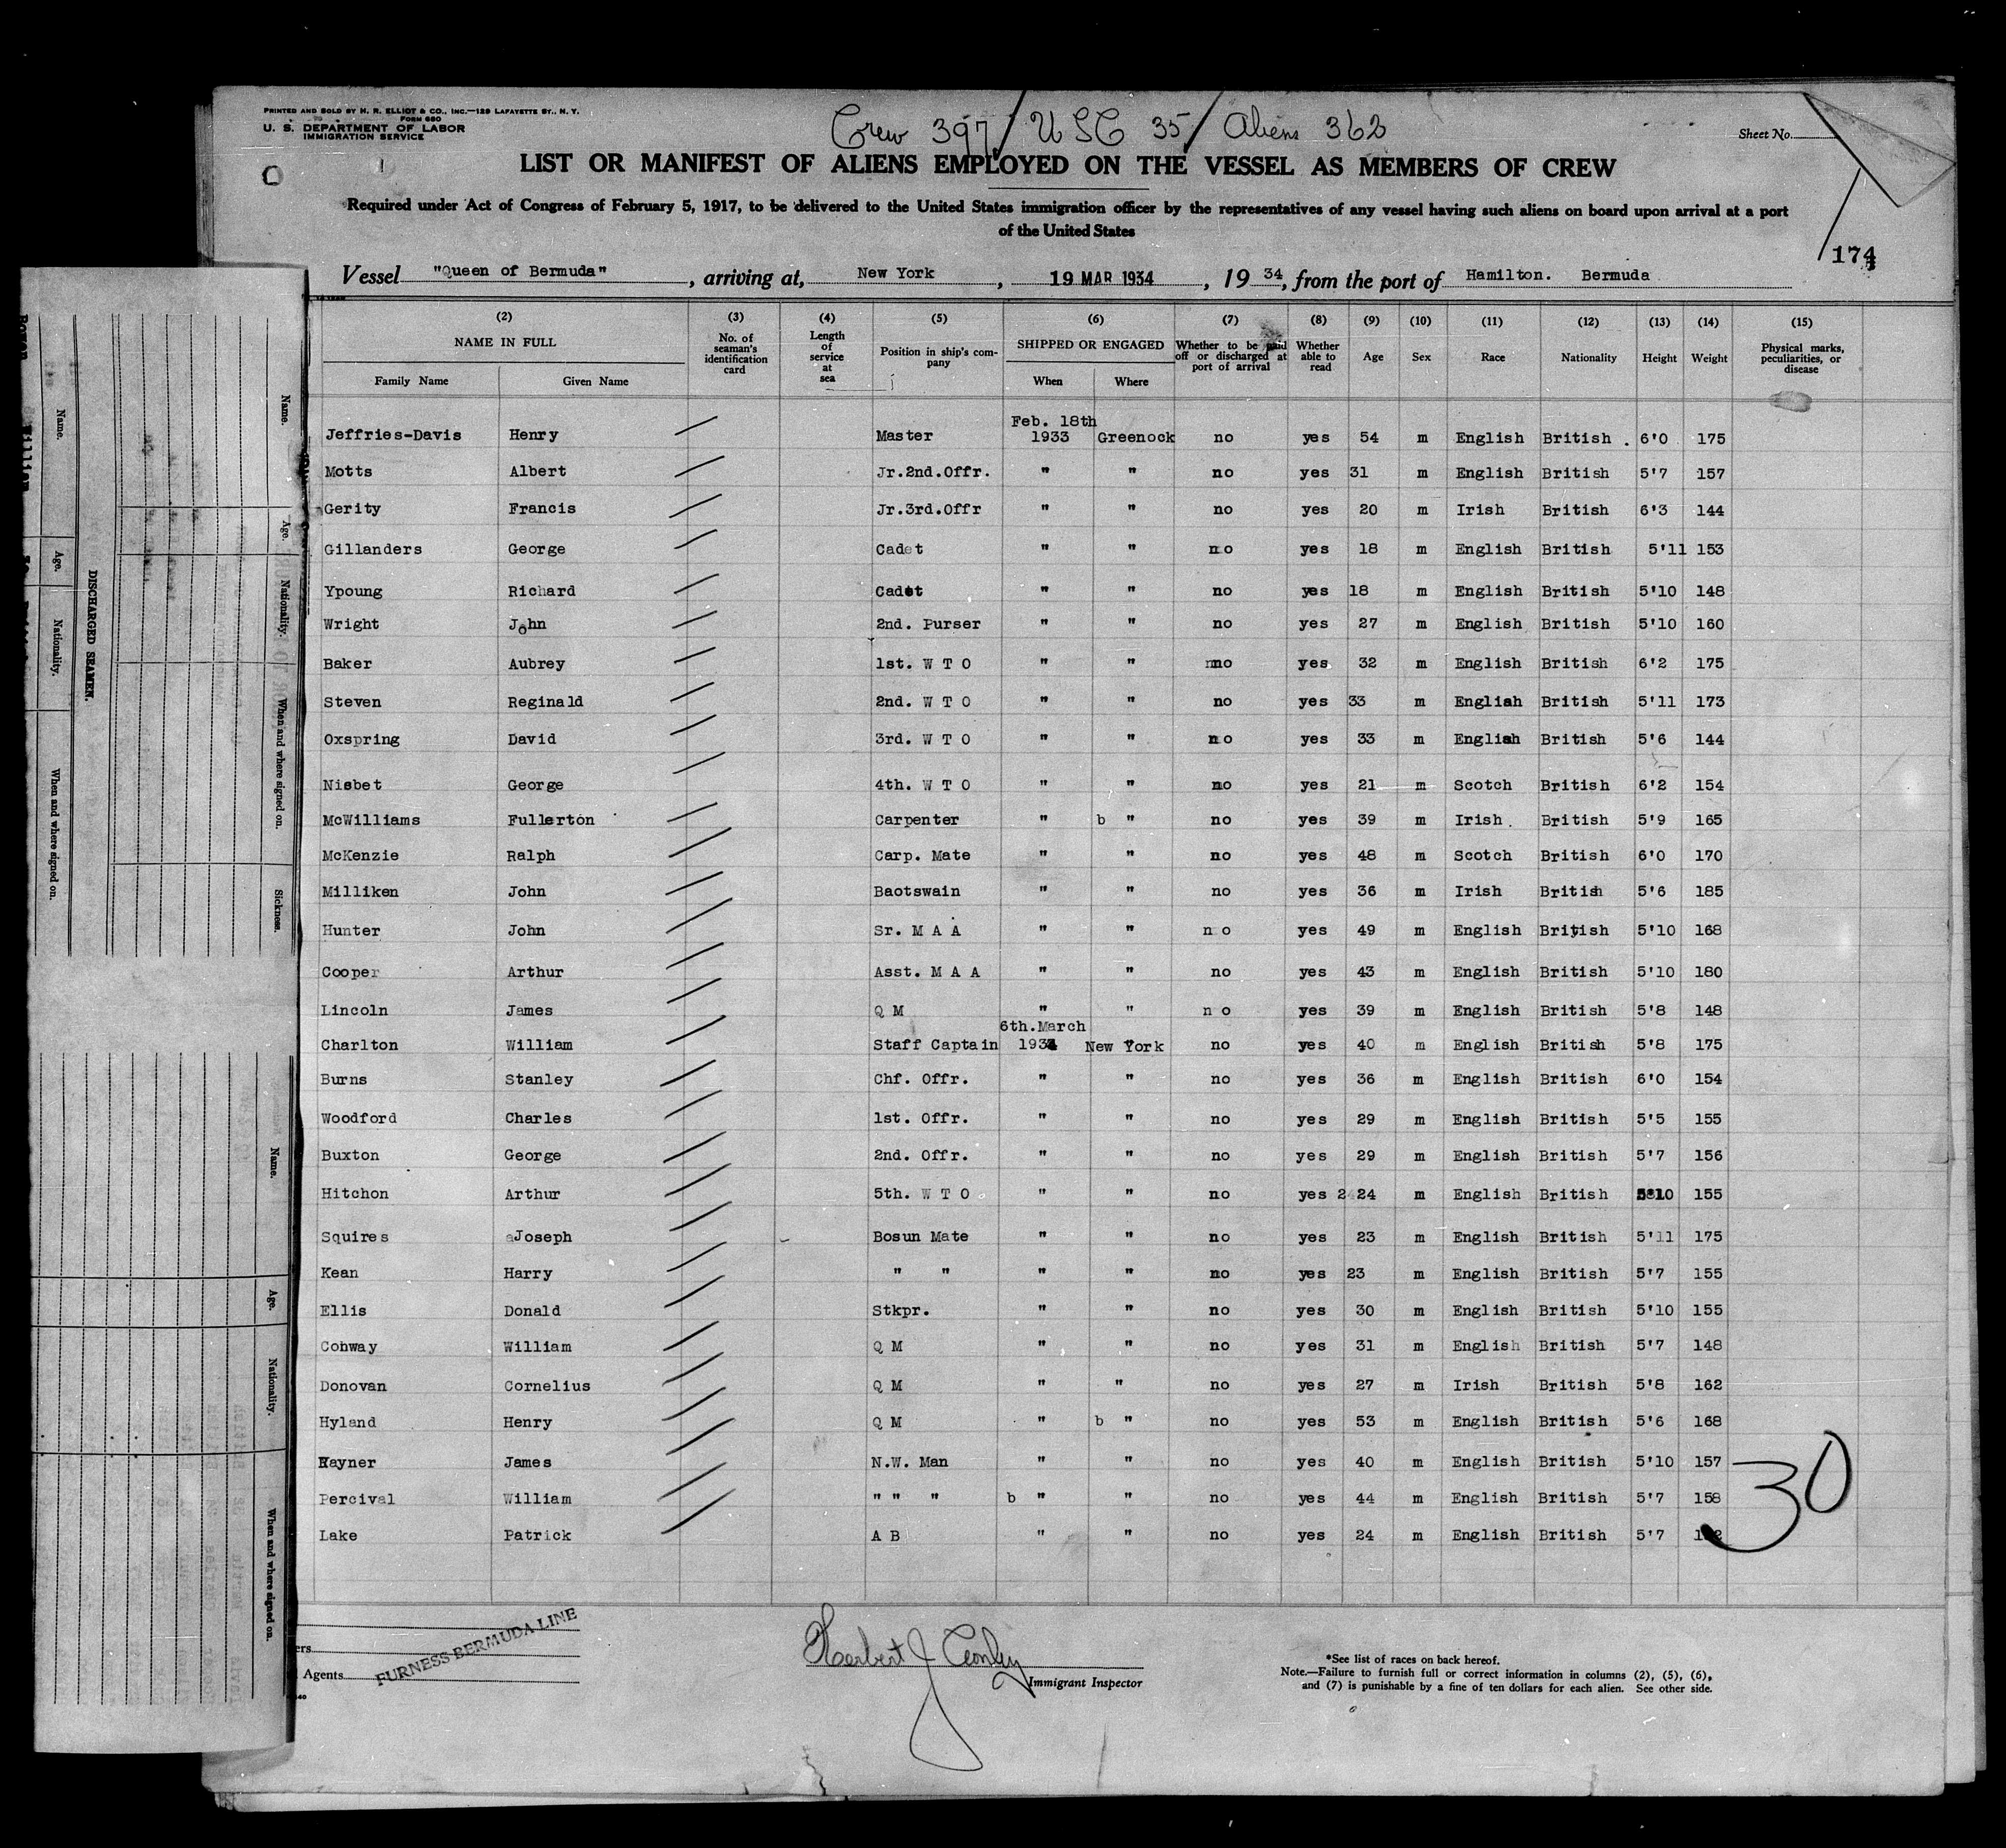 PRINTED AND SOLD BY H. R. ELLIOT & CO., INC.—129 LAFAYETTE ST., N. Y.
FORM 680
U. S. DEPARTMENT OF LABOR
IMMIGRATION SERVICE
Crew 397 / USC 35 / Aliens 362
Sheet No.
LIST OR MANIFEST OF ALIENS EMPLOYED ON THE VESSEL AS MEMBERS OF CREW
Required under Act of Congress of February 5, 1917, to be delivered to the United States immigration officer by the representatives of any vessel having such aliens on board upon arrival at a port
of the United States
174
Vessel "Queen of Bermuda", arriving at, New York, 19 MAR 1934, 19 34, from the port of Hamilton. Bermuda
(2) (3) (4) (5) (6) (7) (8) (9) (10) (11) (12) (13) (14) (15)
NAME IN FULL No. of seaman's identification card Length of service at sea Position in ship's company SHIPPED OR ENGAGED Whether to be paid off or discharged at port of arrival Whether able to read Age Sex Race Nationality Height Weight Physical marks, peculiarities, or disease
Family Name Given Name When Where
Feb. 18th
Jeffries-Davis Henry Master 1933 Greenock no yes 54 m English British . 6'0 175
Motts Albert Jr.2nd.Offr. " " no yes 31 m English British 5'7 157
Gerity Francis Jr.3rd.Offr " " no yes 20 m Irish British 6'3 144
Gillanders George Cadet " " no yes 18 m English British 5'11 153
Ypoung Richard Cadet " " no yes 18 m English British 5'10 148
Wright John 2nd. Purser " " no yes 27 m English British 5'10 160
Baker Aubrey 1st. W T O " " no yes 32 m English British 6'2 175
Steven Reginald 2nd. W T O " " no yes 33 m English British 5'11 173
Oxspring David 3rd. W T O " " no yes 33 m English British 5'6 144
Nisbet George 4th. W T O " " no yes 21 m Scotch British 6'2 154
McWilliams Fullerton Carpenter " b " no yes 39 m Irish . British 5'9 165
McKenzie Ralph Carp. Mate " " no yes 48 m Scotch British 6'0 170
Milliken John Baotswain " " no yes 36 m Irish British 5'6 185
Hunter John Sr. M A A " " n o yes 49 m English British 5'10 168
Cooper Arthur Asst. M A A " " no yes 43 m English British 5'10 180
Lincoln James Q M " " n o yes 39 m English British 5'8 148
6th.March
Charlton William Staff Captain 1934 New York no yes 40 m English British 5'8 175
Burns Stanley Chf. Offr. " " no yes 36 m English British 6'0 154
Woodford Charles 1st. Offr. " " no yes 29 m English British 5'5 155
Buxton George 2nd. Offr. " " no yes 29 m English British 5'7 156
Hitchon Arthur 5th. W T O " " no yes 24 m English British 5'10 155
Squires aJoseph Bosun Mate " " no yes 23 m English British 5'11 175
Kean Harry " " " " no yes 23 m English British 5'7 155
Ellis Donald Stkpr. " " no yes 30 m English British 5'10 155
Conway William Q M " " no yes 31 m English British 5'7 148
Donovan Cornelius Q M " " no yes 27 m Irish British 5'8 162
Hyland Henry Q M " b " no yes 53 m English British 5'6 168
Rayner James N.W. Man " " no yes 40 m English British 5'10 157
Percival William " " " b " " no yes 44 m English British 5'7 158
Lake Patrick A B " " no yes 24 m English British 5'7
30
FURNESS BERMUDA LINE
Agents
Herbert J Conley
Immigrant Inspector
*See list of races on back hereof.
Note.—Failure to furnish full or correct information in columns (2), (5), (6),
and (7) is punishable by a fine of ten dollars for each alien. See other side.
DISCHARGED SEAMEN.
Name. Age. Nationality. When and where signed on.
Name. Age. Nationality. When and where signed on. Sickness.
Name. Age. Nationality. When and where signed on.